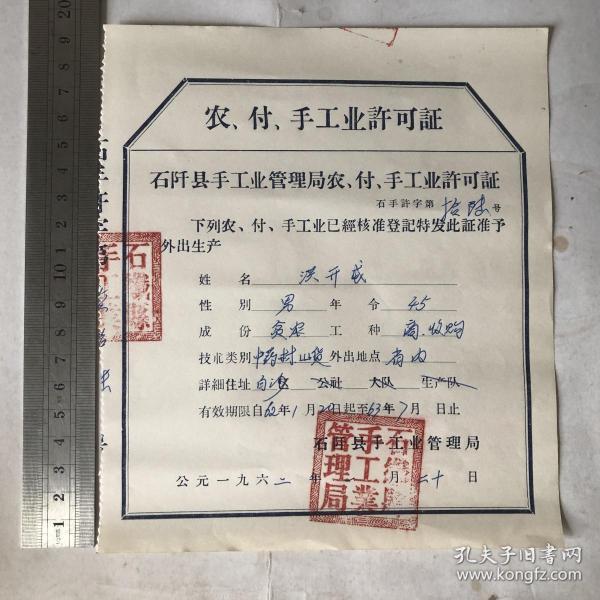 农、付、手工业許可証
石阡县手工业管理局农、付、手工业許可証
石手許字第拾陆号
下列农、付、手工业已經核准登記特发此証准予
外出生产
姓名 洪开成
性別 男 年令 45
成份 贫农 工种 商.收购
技朮类別 中药材山货 外出地点 省内
詳細住址 白沙区 公社 大队 生产队
有效期限自62年1月20日起至63年7月 日止
石阡县手工业管理局
公元一九六二年 月二十日
石阡县手工業管理局
孔夫子旧書网
www.kongfz.com